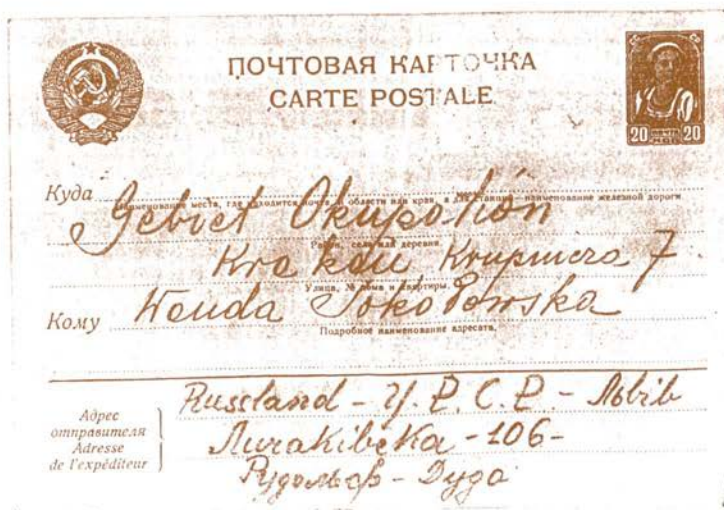 ПОЧТОВАЯ КАРТОЧКА
CARTE POSTALE
20 ПОЧТА СССР 20
Куда
Наименование места, где находится почта, и области или края, а для станций — наименование железной дороги
Gebiet Okupation
Район, село или деревня
Krakau Krupnicza 7
Улица, № дома и квартиры.
Wanda Sokołowska
Кому
Подробное наименование адресата.
Адрес отправителя
Adresse de l'expéditeur
Russland - У. Р. С. Р. - Львів
Личаківська - 106 -
Рудольф - Дуда